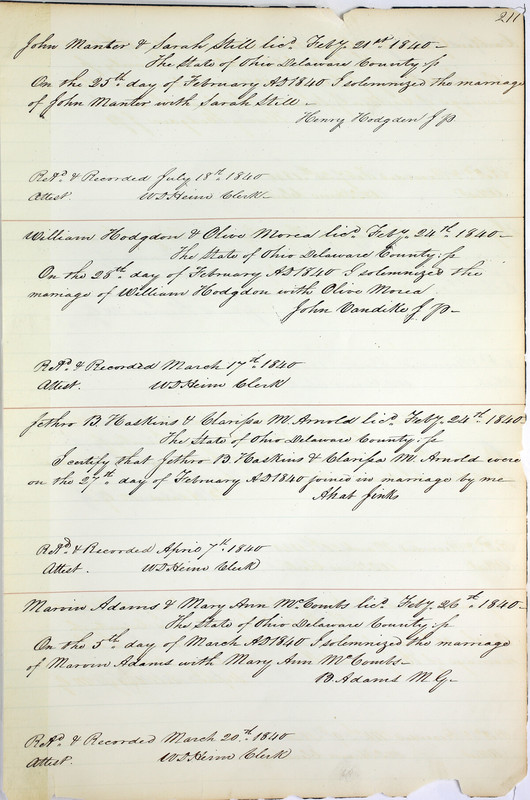 211
John Manter & Sarah Still licd. Feby. 21st 1840–
The State of Ohio Delaware County: ſs
On the 25th day of February AD 1840 I solemnized the marriage
of John Manter with Sarah Still –
Henry Hodgden J P.
Retd. & Recorded July 18th 1840
Attest. W D Heim Clerk–
William Hodgdon & Olive Morea licd. Feby. 24th. 1840–
The State of Ohio Delaware County: ſs
On the 28th day of February AD 1840 I solemnized the
marriage of William Hodgdon with Olive Morea
John Vandike J P–
Retd. & Recorded March 17th 1840
Attest. W D Heim Clerk
Jethro B. Haskins & Clariſsa M. Arnold licd. Feby. 24th. 1840
The State of Ohio Delaware County: ſs
I certify that Jethro B. Haskins & Clariſsa M. Arnold were
on the 27th day of February AD 1840 joined in marriage by me
Ahab Jinks
Retd. & Recorded April 7th 1840
Attest. W D Heim Clerk
Marvin Adams & Mary Ann McCombs licd. Feby. 26th. 1840–
The State of Ohio Delaware County: ſs
On the 5th day of March AD 1840 I solemnized the marriage
of Marvin Adams with Mary Ann McCombs–
B. Adams M. G–
Retd. & Recorded March 20th. 1840
Attest. W D Heim Clerk